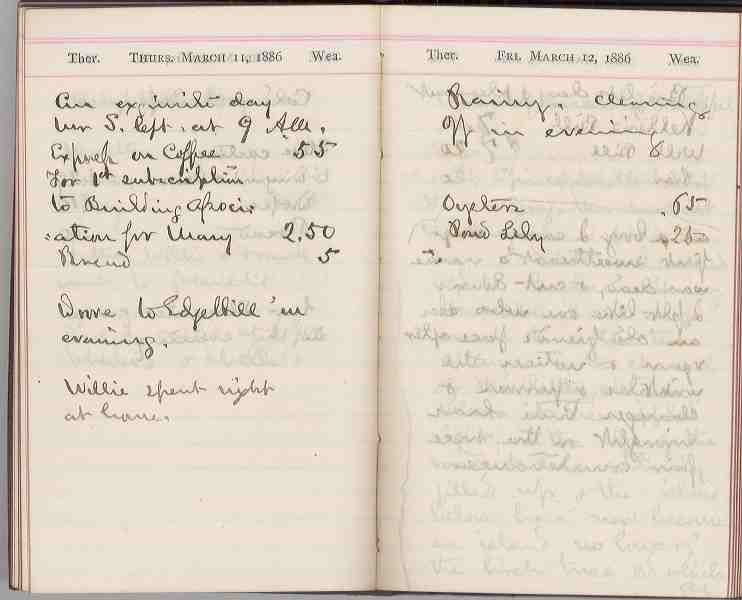 Ther. THURS. MARCH 11, 1886 Wea.
An exquisite day
Mr S. left at 9 AM.
Express on Coffee 55
For 1st subscription
to Building Associ-
:ation for Mary 2.50
Bread 5
Drove to Edgehill 'in
evening.
Willie spent night
at home.
Ther. FRI. MARCH 12, 1886 Wea.
Rainy. Clearing
off in evening
Oysters .65
Pond Lily .25